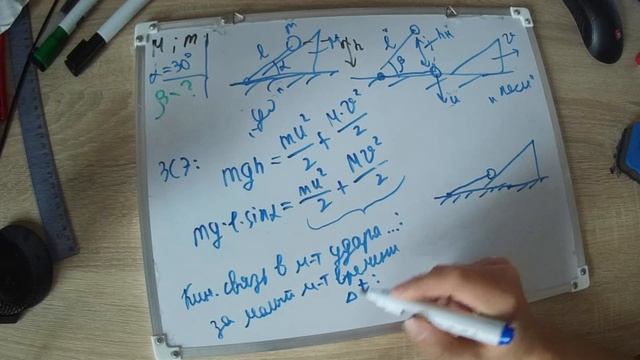 M; m
α = 30°
β - ?
l
m
α
h
"до"
l
β
hк
u
v
"после"
ЗСЭ:
mgh = mu²/2 + M·v²/2
mg·l·sinα = mu²/2 + Mv²/2
Кин. связь в м-т удара...:
за малый м-т времени
Δt: